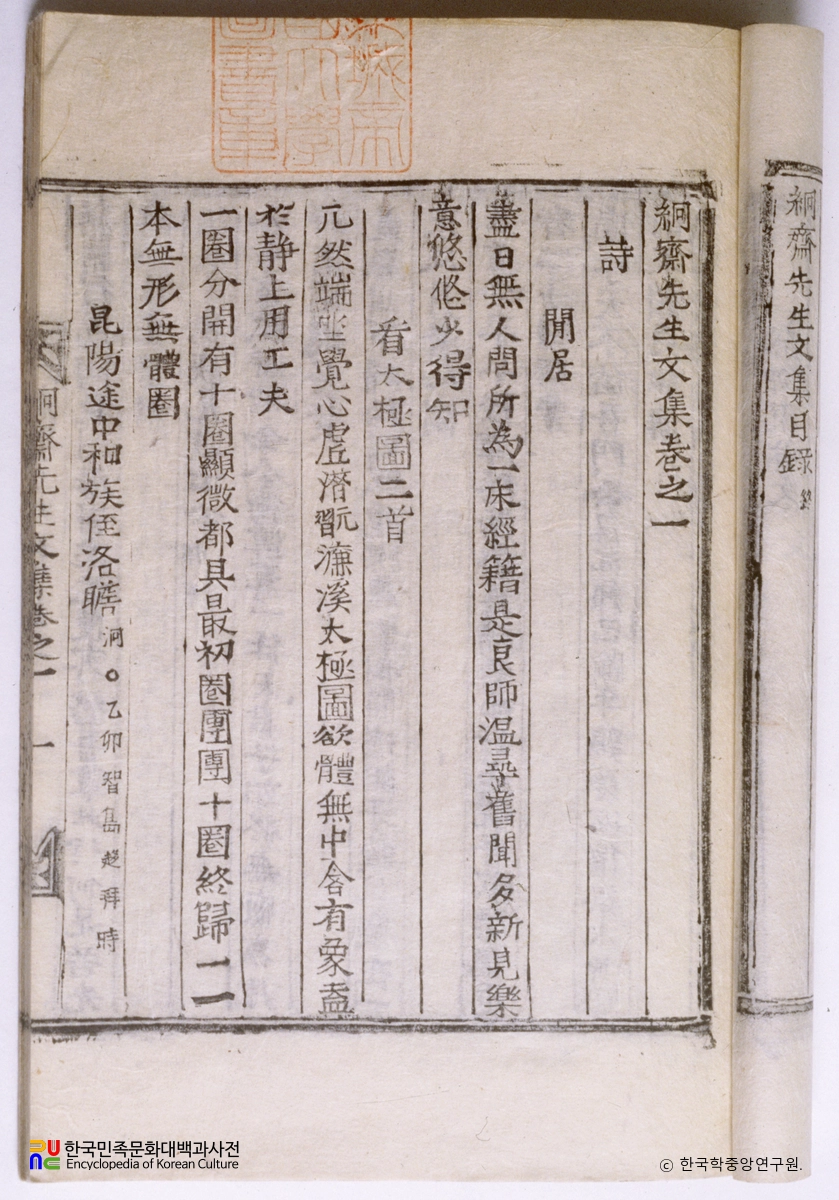 絅齋先生文集目録 終
京城帝
國大學
圖書章
絅齋先生文集卷之一
詩
閒居
盡日無人問所為一床經籍是良師溫尋舊聞多新見樂
意悠悠少得知
看太極圖二首
兀然端坐覺心虛潛翫濂溪太極圖欲體無中含有象盍
於静上用工夫
一圈分開有十圈顯微都具最初圈團團十圈終歸一一
本無形無體圈
昆陽途中和族侄洛瞻 泂○乙卯智島趍拜時
絅齋先生文集卷之一 一
한국민족문화대백과사전
Encyclopedia of Korean Culture
© 한국학중앙연구원.